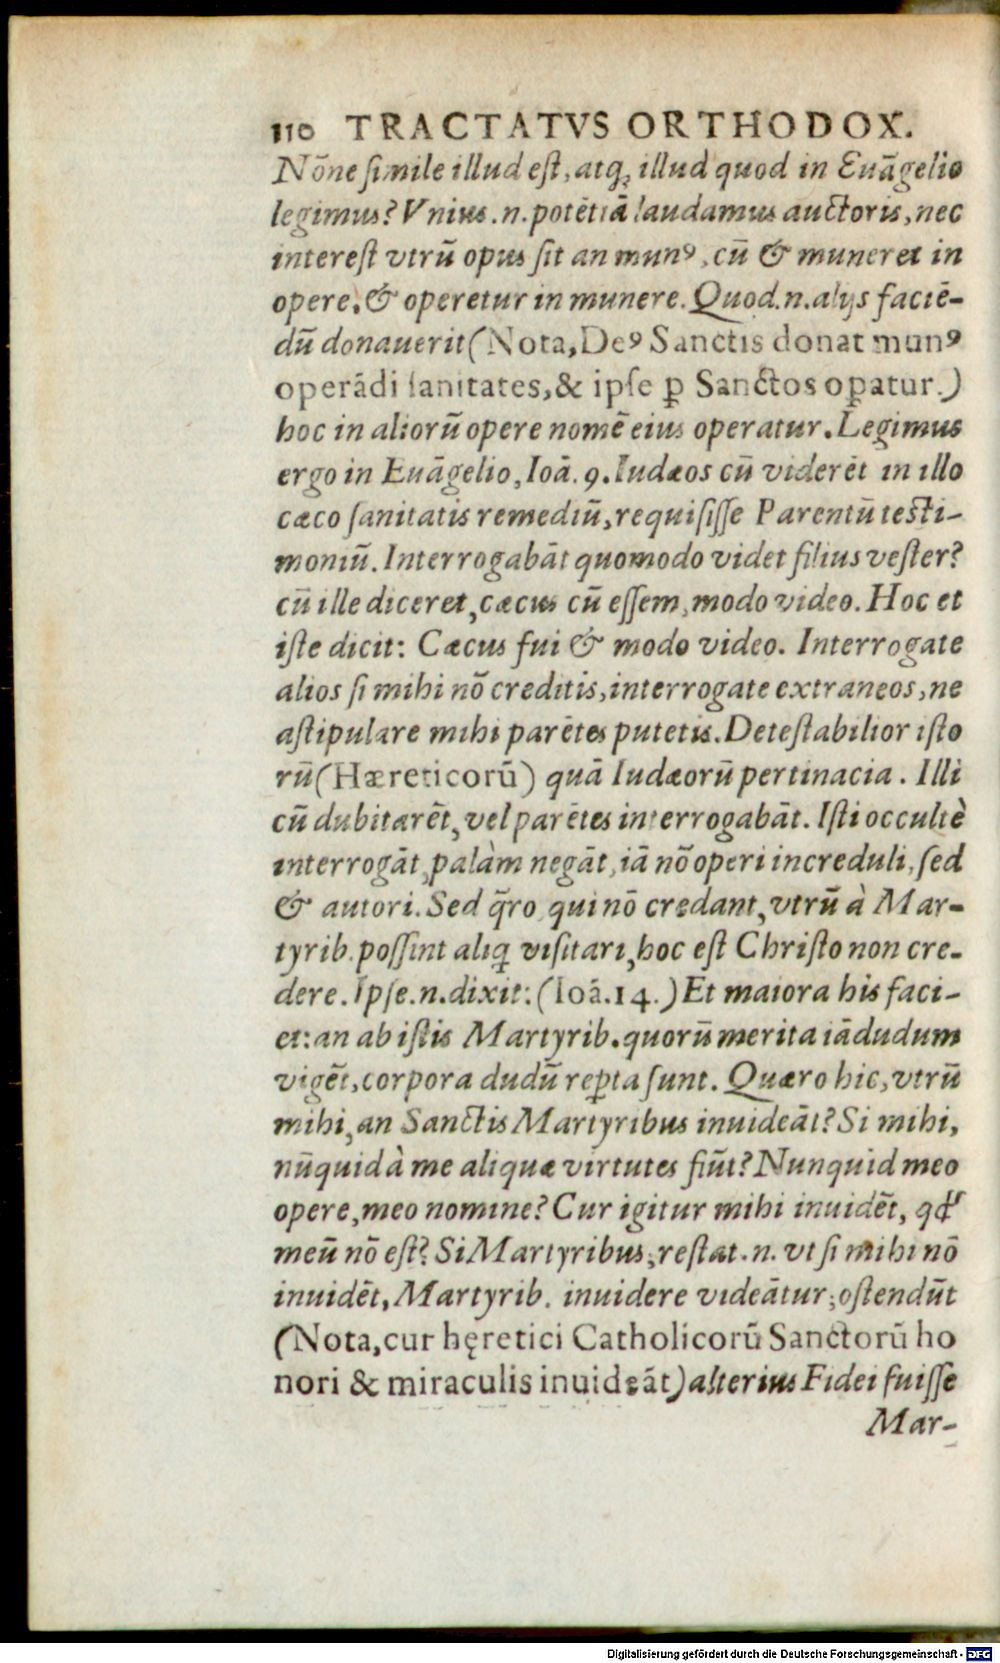 110 TRACTATVS ORTHODOX.
Nõne ſimile illud eſt, atq; illud quod in Euãgelio
legimus? Vnius .n. potẽtiã laudamus auctoris, nec
intereſt vtrũ opus ſit an munꝰ, cũ & muneret in
opere, & operetur in munere. Quod .n. alijs faciẽ-
dũ donauerit (Nota, Deꝰ Sanctis donat munꝰ
operãdi ſanitates, & ipſe ꝑ Sanctos oꝑatur.)
hoc in aliorũ opere nomẽ eius operatur. Legimus
ergo in Euãgelio, Ioã. 9. Iudæos cũ viderẽt in illo
cæco ſanitatis remediũ, requiſiſſe Parentũ teſti-
moniũ. Interrogabãt quomodo videt filius veſter?
cũ ille diceret, cæcus cũ eſſem, modo video. Hoc et
iſte dicit: Cæcus fui & modo video. Interrogate
alios ſi mihi nõ creditis, interrogate extraneos, ne
aſtipulare mihi parẽtes putetis. Deteſtabilior iſto
rũ (Hæreticorũ) quã Iudæorũ pertinacia. Illi
cũ dubitarẽt, vel parẽtes interrogabãt. Iſti occultè
interrogãt, palàm negãt, iã nõ operi increduli, ſed
& autori. Sed q̃ro qui nõ credant, vtrũ à Mar-
tyrib. poſſint aliq̃ viſitari, hoc eſt Chriſto non cre-
dere. Ipſe .n. dixit: (Ioã. 14.) Et maiora his faci-
et: an ab iſtis Martyrib. quorũ merita iãdudum
vigẽt, corpora dudũ reꝑta ſunt. Quæro hic, vtrũ
mihi, an Sanctis Martyribus inuideãt? Si mihi,
nũquid à me aliquæ virtutes fiũt? Nunquid meo
opere, meo nomine? Cur igitur mihi inuidẽt, qđ
meũ nõ eſt? Si Martyribus, reſtat .n. vt ſi mihi nõ
inuidẽt, Martyrib. inuidere videãtur; oſtendũt
(Nota, cur hęretici Catholicorũ Sanctorũ ho
nori & miraculis inuideãt) alterius Fidei fuiſſe
Mar-
Digitalisierung gefördert durch die Deutsche Forschungsgemeinschaft - DFG